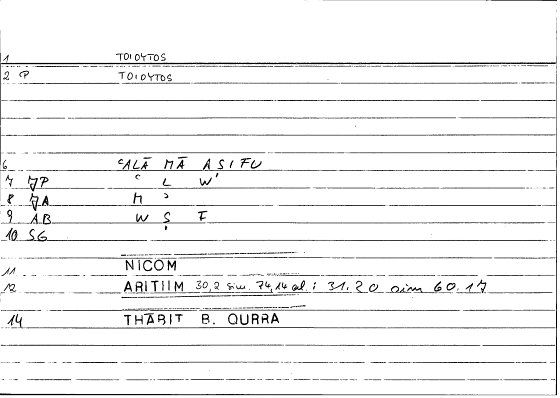 1 ΤΟΙΟΥΤΟΣ
2 P ΤΟΙΟΥΤΟΣ
6 ʿALĀ MĀ ASIFU
7 JP ʿ L W'
8 JA M ʾ
9 AB W Ṣ F
10 SG '
11 NICOM
12 ARITHM 30,2 sim. 74,14 al; 31.20 sim 60.17
14 THĀBIT B. QURRA